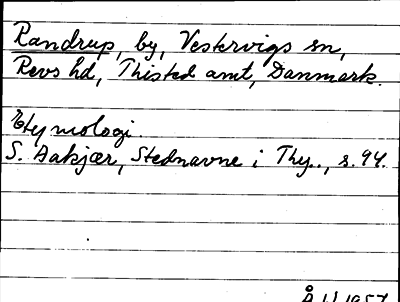 Randrup, by, Vestervigs sn,
Revs hd, Thisted amt, Danmark.
Etymologi.
S. Aakjær, Stednavne i Thy., s. 94.
Å. U. 1957